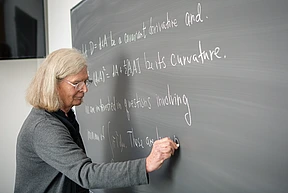 D=d+A be a covariant derivative and
= dA + ½[A,A] be its curvature.
am interested in questions involving
They are